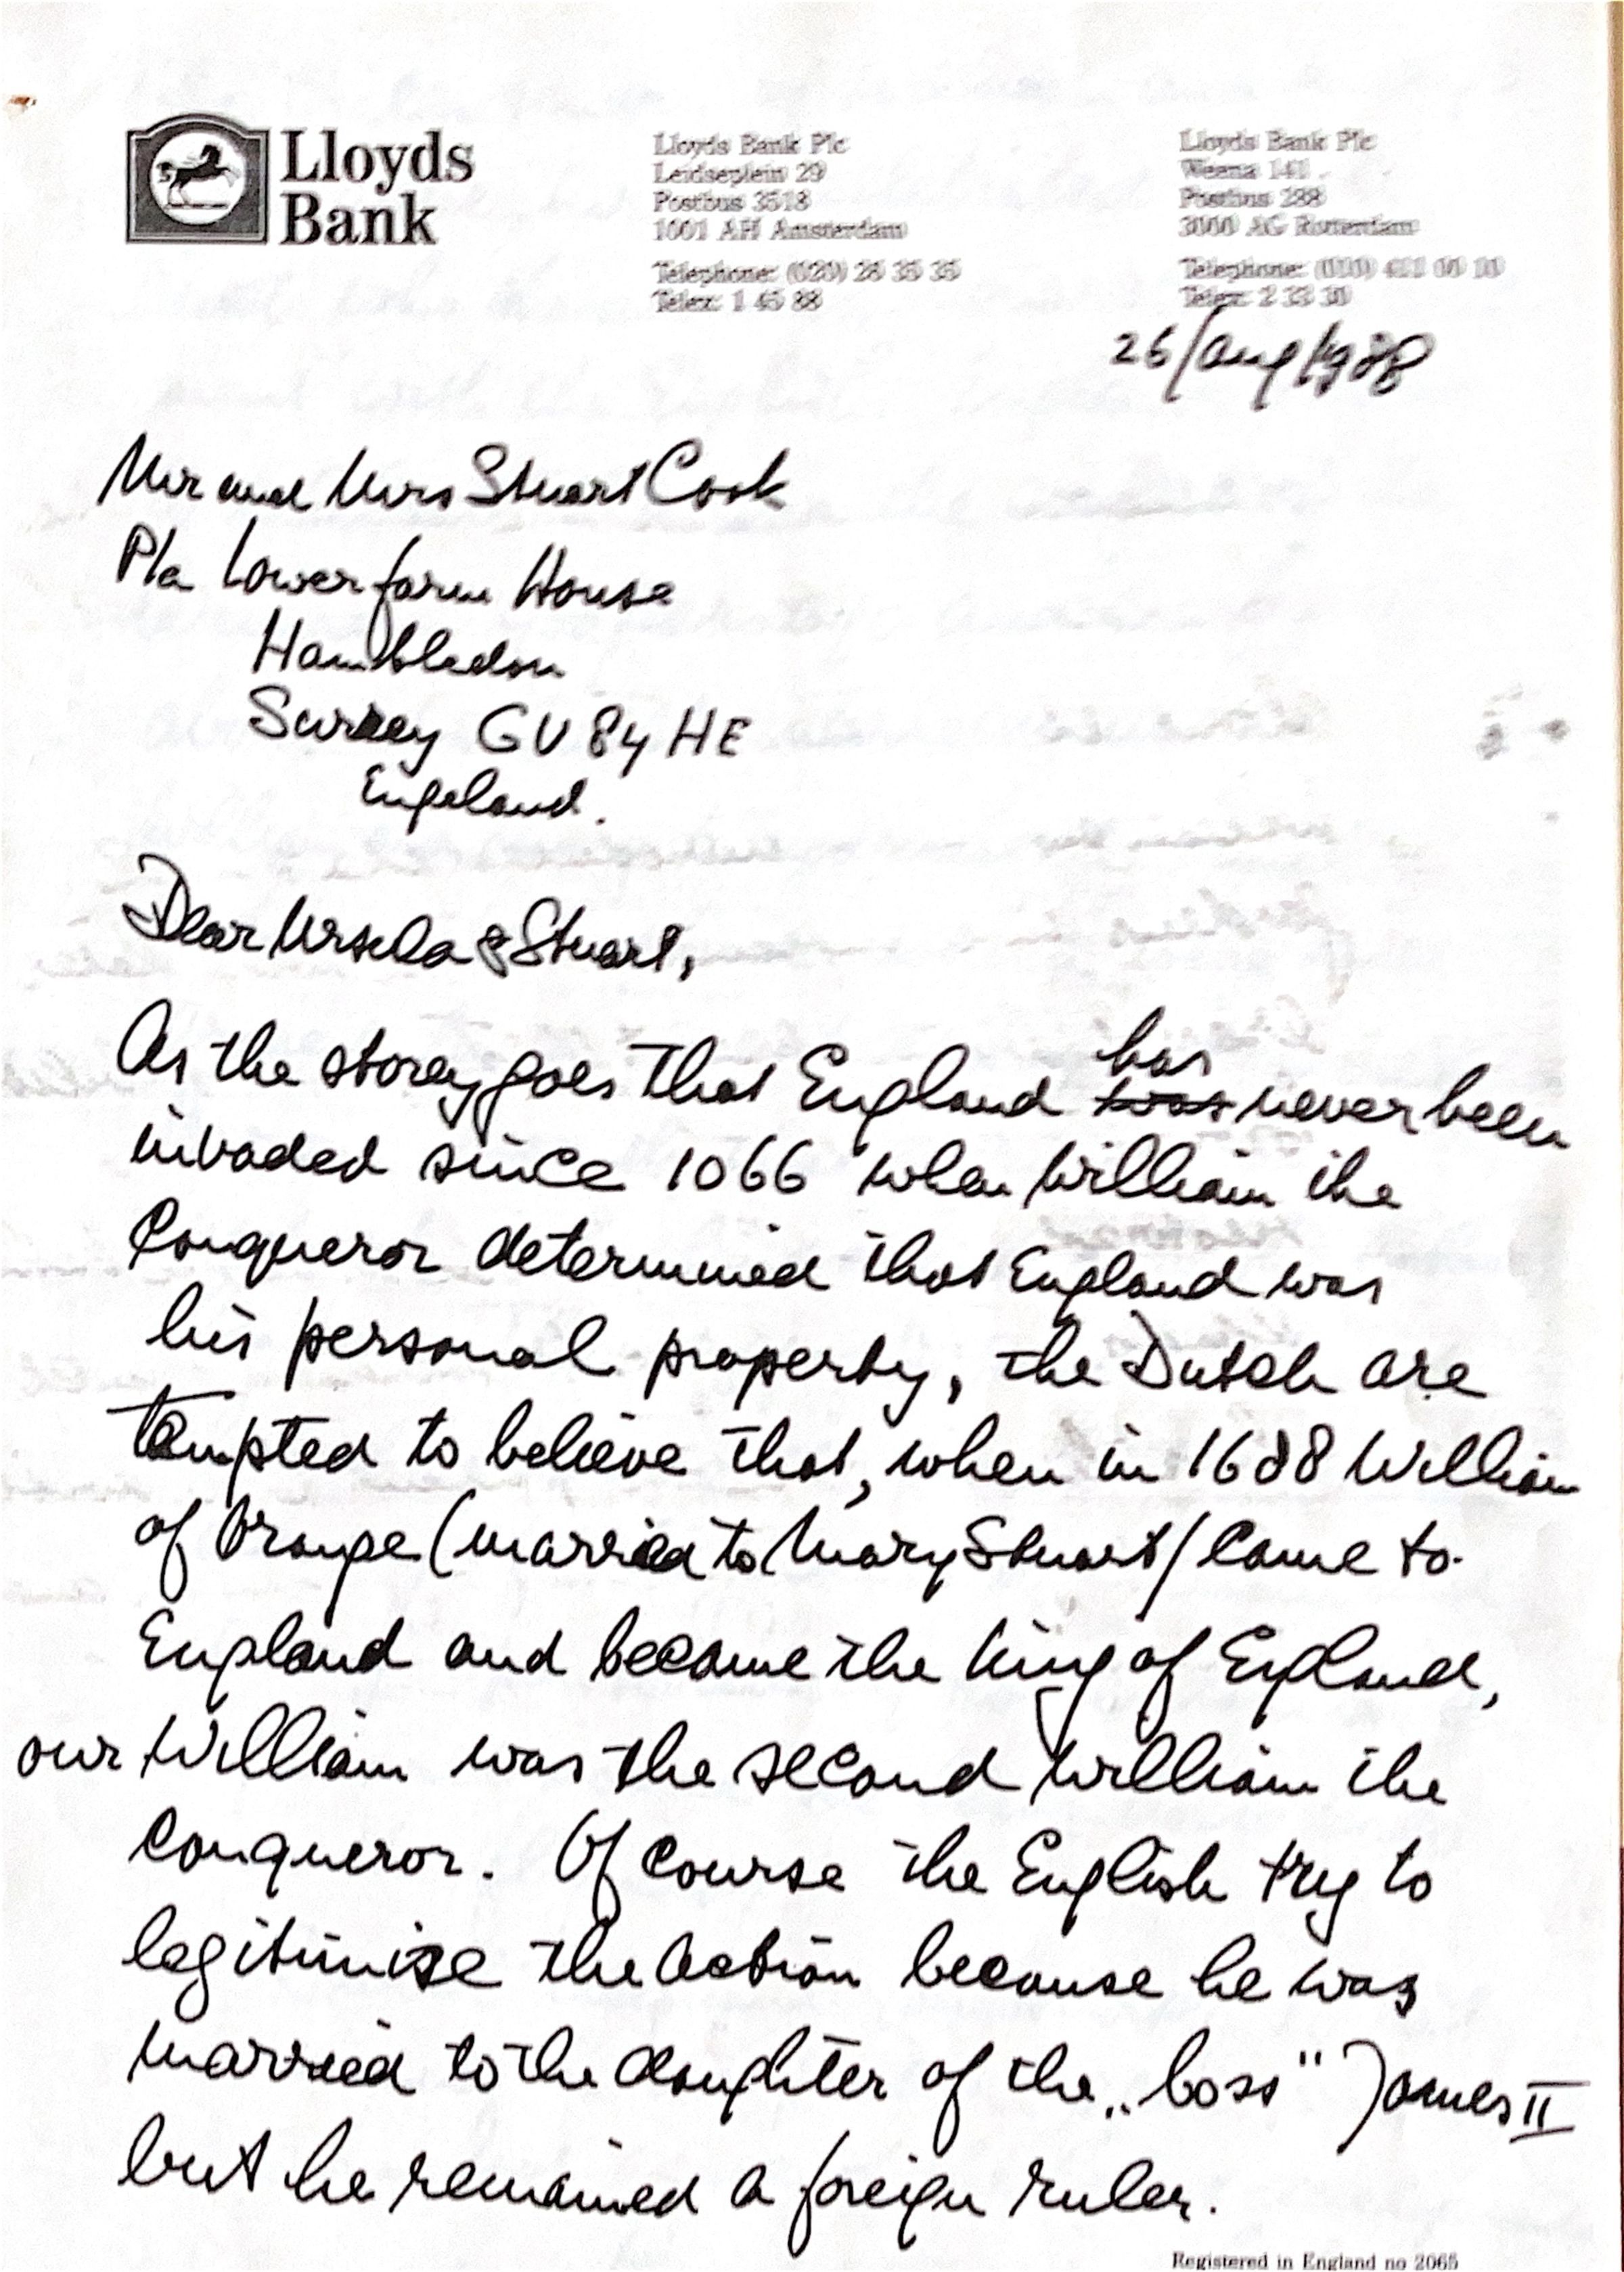 Lloyds
Bank
Lloyds Bank Plc
Leidseplein 29
Postbus 3518
1001 AH Amsterdam
Telephone: (020) 26 35 35
Telex: 1 45 88
Lloyds Bank Plc
Weena 141
Postbus 288
3000 AG Rotterdam
Telephone: (010) 411
Telex: 2 33 30
26/Aug/1988
Mr and Mrs Stuart Cook
Lower farm House
Hambledon
Surrey GU 84 HE
Engeland.
Dear Ursula & Stuart,
As the storey goes that England has never been
invaded since 1066 when William the
Conqueror determined that England was
his personal property, the Dutch are
tempted to believe that, when in 1688 William
of Orange (married to Mary Stuart) came to
England and became the King of England,
our William was the second William the
Conqueror. Of course the English try to
legitimize the action because he was
married to the daughter of the „boss" James II
but he remained a foreign ruler.
Registered in England no 2065